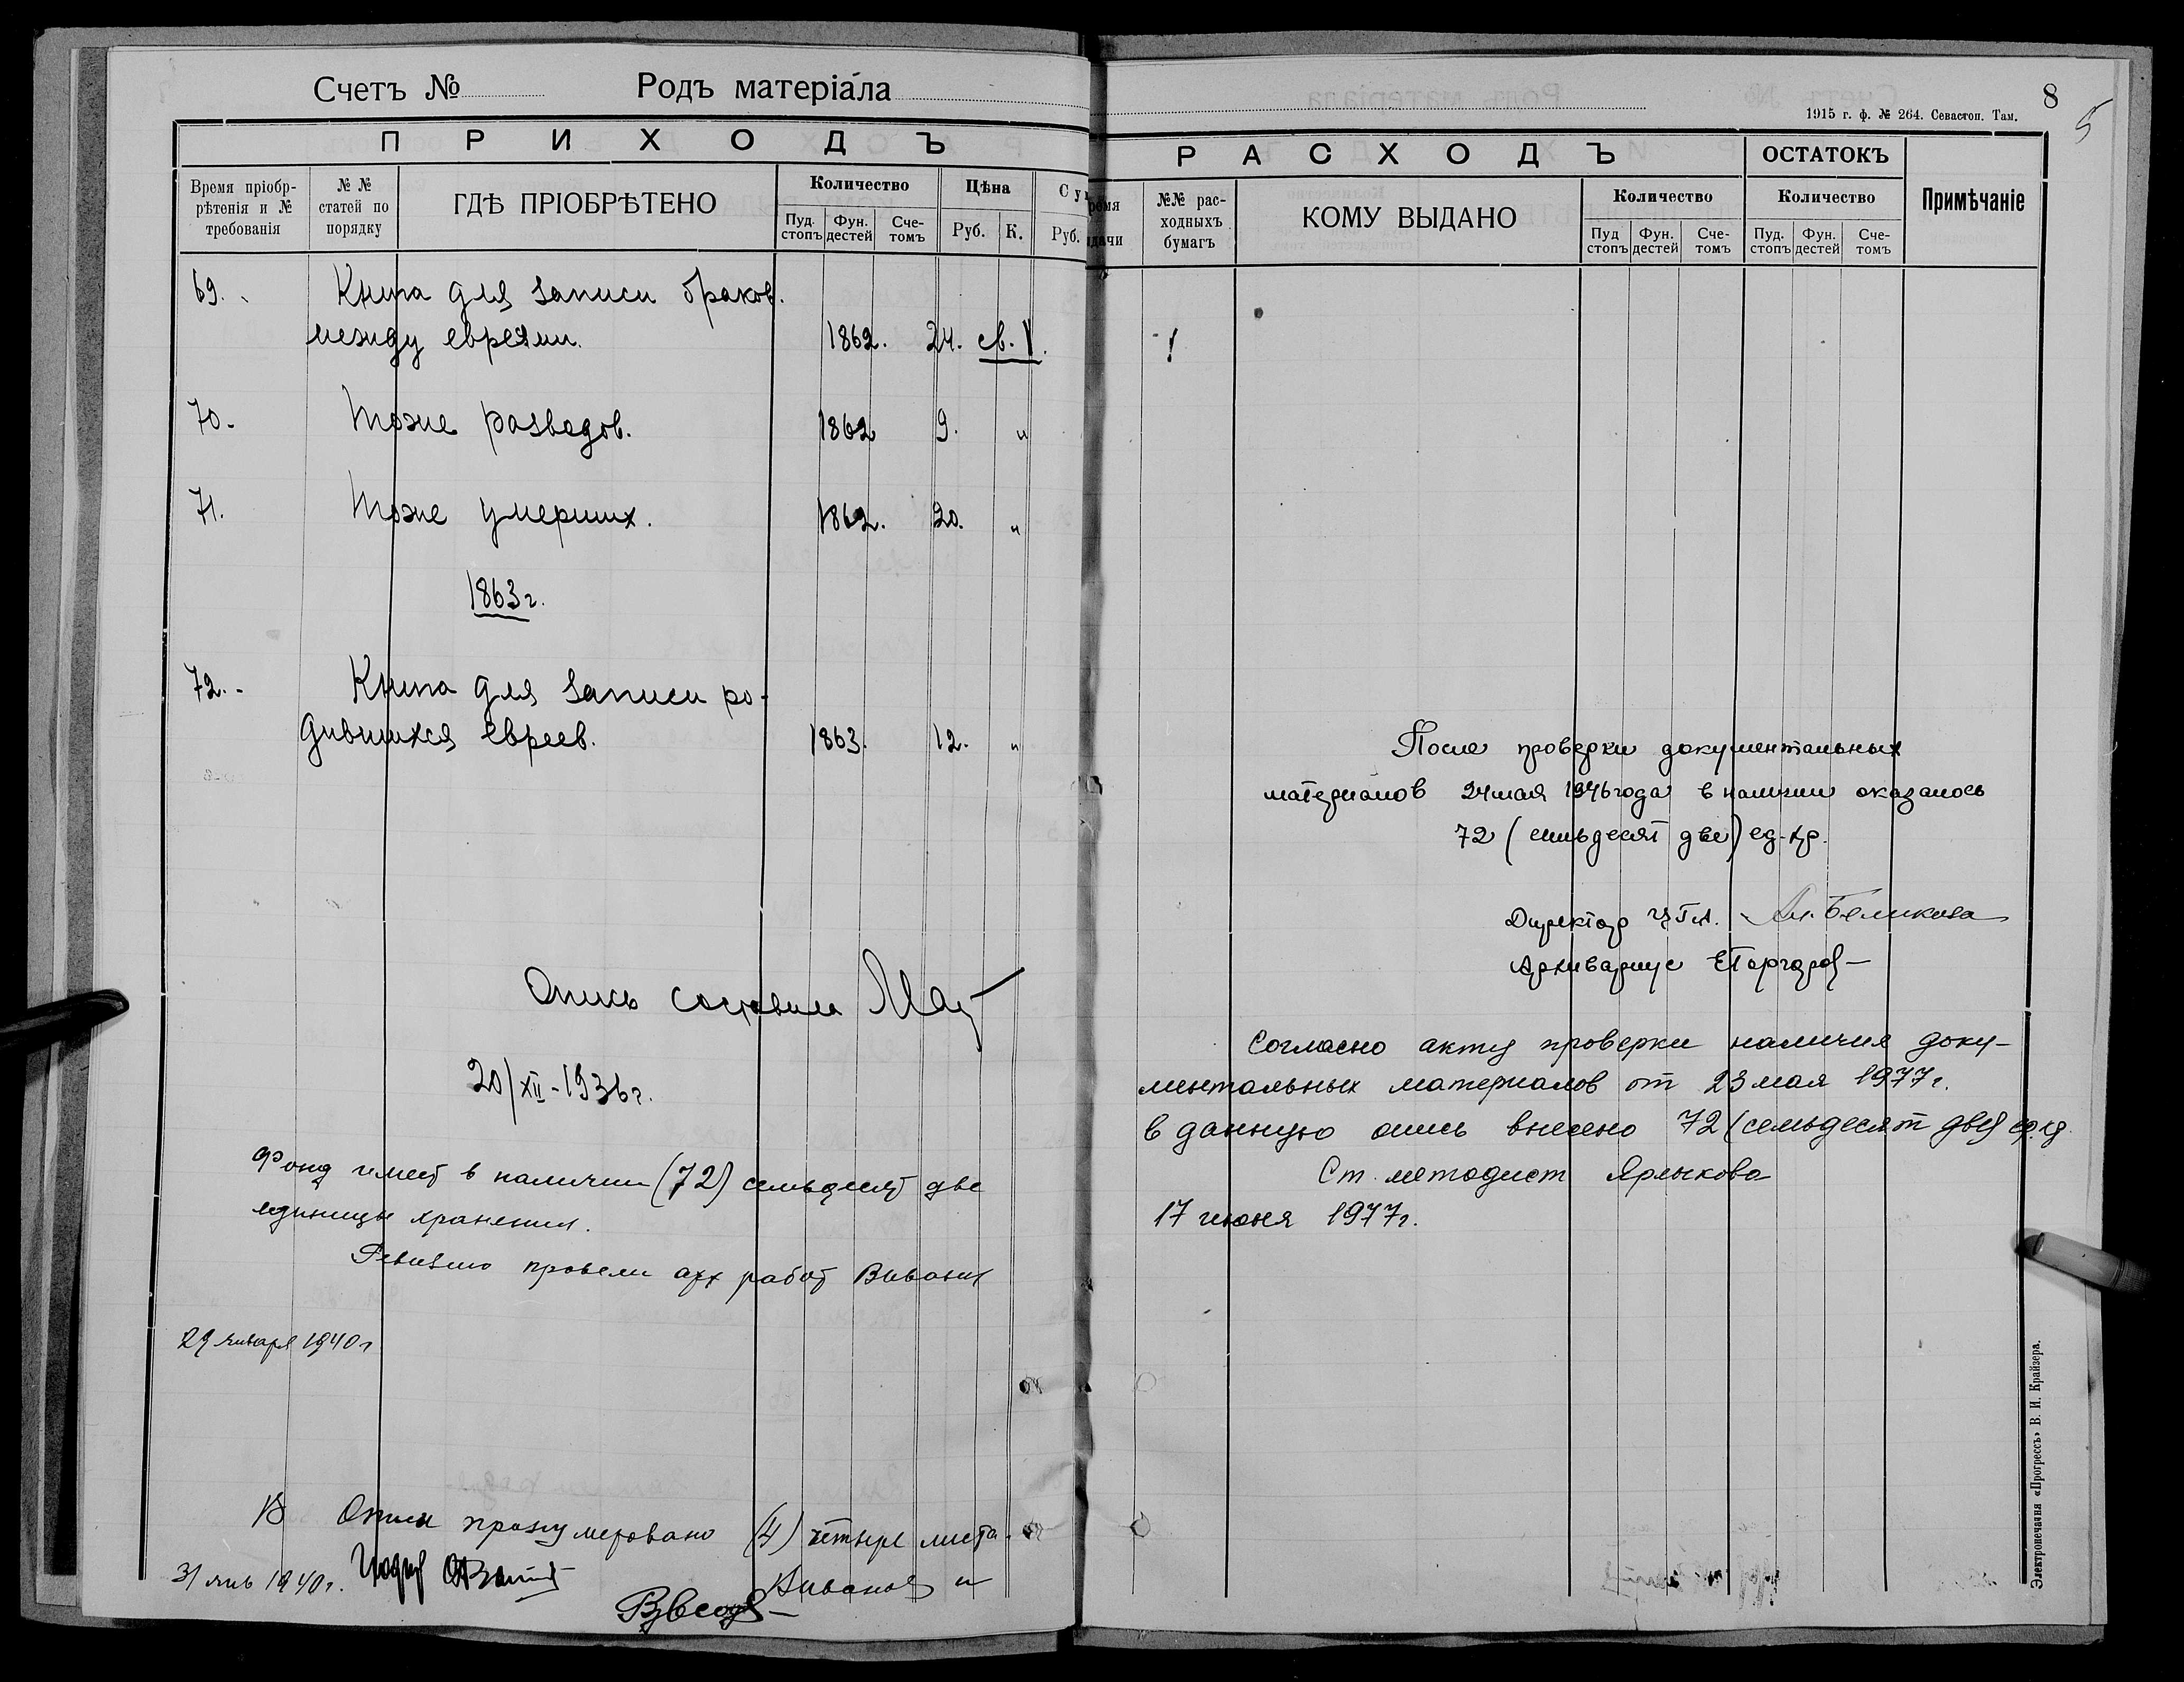 Счетъ № Родъ матеріала
П Р И Х О Д Ъ
Время пріобр-
рѣтенія и №
требованія
№ №
статей по
порядку
ГДѢ ПРІОБРѢТЕНО
Количество
Пуд.
стопъ
Фун.
дестей
Сче-
томъ
Цѣна
Руб. К.
Су
Руб.
69. Книга для записи браков
между евреями. 1862. 24. св. V.
70. Тоже разводов. 1862 9. "
71. Тоже умерших. 1862. 20. "
1863 г.
72. Книга для записи ро-
дившихся евреев. 1863. 12. "
Опись составил
20/XII-1936 г.
Фонд имеет в наличии (72) семьдесят две
единицы хранения.
Ревизию провели арх работ
29 января 1940 г
В Описи пронумеровано (4) четыре листа.
31 янв 1940 г.
8
5
1915 г. ф. № 264. Севастоп. Там.
Р А С Х О Д Ъ
ремя
дачи
№№ рас-
ходныхъ
бумагъ
КОМУ ВЫДАНО
Количество
Пуд
стопъ
Фун.
дестей
Сче-
томъ
ОСТАТОКЪ
Количество
Пуд.
стопъ
Фун.
дестей
Сче-
томъ
Примѣчаніе
После проверки документальных
материалов 24 мая 1946 года в наличии оказалось
72 (семьдесят две) ед. хр.
Директор ЦГА. Беликова
Архивариус
Согласно акту проверки наличия доку-
ментальных материалов от 23 мая 1977 г.
в данную опись внесено 72 (семьдесят две) ед. хр
Ст. методист Ярлыкова
17 июня 1977 г.
Электропечатня «Прогрессъ» В. И. Крайзера.